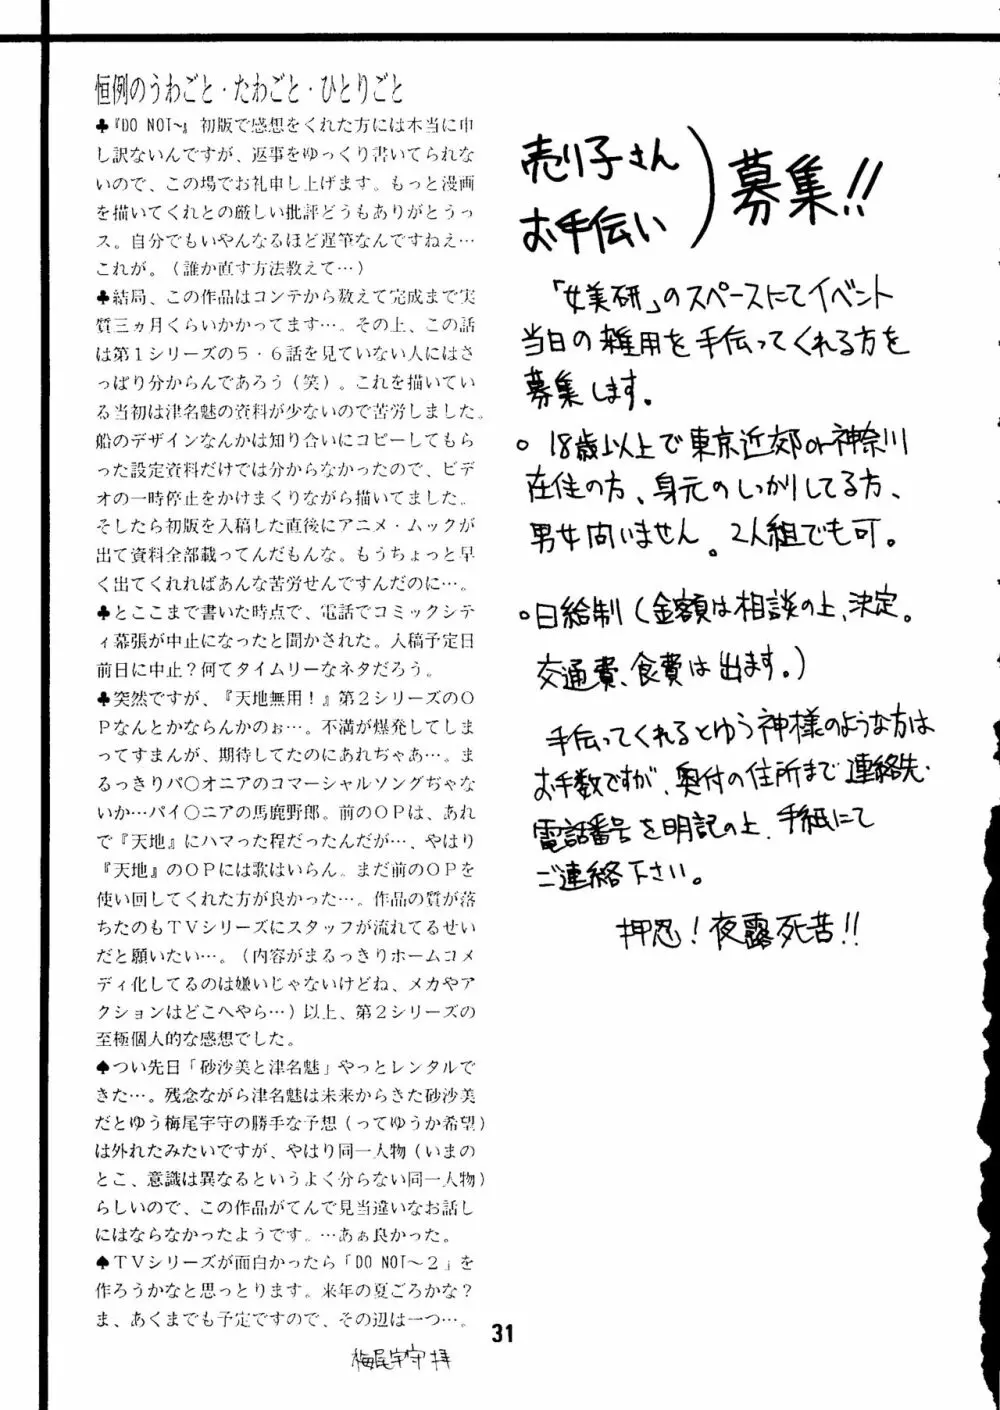 恒例のうわごと・たわごと・ひとりごと
♣『DO NOT〜』初版で感想をくれた方には本当に申
し訳ないんですが、返事をゆっくり書いてられな
いので、この場でお礼申し上げます。もっと漫画
を描いてくれとの厳しい批評どうもありがとうっ
ス。自分でもいやんなるほど遅筆なんですねえ…
これが。（誰か直す方法教えて…）
♣結局、この作品はコンテから数えて完成まで実
質三ヵ月くらいかかってます…。その上、この話
は第１シリーズの５・６話を見ていない人にはさ
っぱり分からんであろう（笑）。これを描いてい
る当初は津名魅の資料が少ないので苦労しました。
船のデザインなんかは知り合いにコピーしてもら
った設定資料だけでは分からなかったので、ビデ
オの一時停止をかけまくりながら描いてました。
そしたら初版を入稿した直後にアニメ・ムックが
出て資料全部載ってんだもんな。もうちょっと早
く出てくれればあんな苦労せんですんだのに…。
♣とここまで書いた時点で、電話でコミックシテ
ィ幕張が中止になったと聞かされた。入稿予定日
前日に中止？何てタイムリーなネタだろう。
♣突然ですが、『天地無用！』第２シリーズのＯ
Ｐなんとかならんかのぉ…。不満が爆発してしま
ってすまんが、期待してたのにあれぢゃあ…。ま
るっきりパ〇オニアのコマーシャルソングぢゃな
いか…パイ〇ニアの馬鹿野郎。前のＯＰは、あれ
で『天地』にハマった程だったんだが…、やはり
『天地』のＯＰには歌はいらん。まだ前のＯＰを
使い回してくれた方が良かった…。作品の質が落
ちたのもＴＶシリーズにスタッフが流れてるせい
だと願いたい…。（内容がまるっきりホームコメ
ディ化してるのは嫌いじゃないけどね、メカやア
クションはどこへやら…）以上、第２シリーズの
至極個人的な感想でした。
♠つい先日「砂沙美と津名魅」やっとレンタルで
きた…。残念ながら津名魅は未来からきた砂沙美
だとゆう梅尾宇守の勝手な予想（ってゆうか希望）
は外れたみたいですが、やはり同一人物（いまの
とこ、意識は異なるというよく分らない同一人物）
らしいので、この作品がてんで見当違いなお話し
にはならなかったようです。…あぁ良かった。
♠ＴＶシリーズが面白かったら「DO NOT〜２」を
作ろうかなと思っとります。来年の夏ごろかな？
ま、あくまでも予定ですので、その辺は一つ…。
梅尾宇守拝
売り子さん
お手伝い
）募集!!
「女美研」のスペースにてイベント
当日の雑用を手伝ってくれる方を
募集します。
○18歳以上で東京近郊or神奈川
在住の方、身元のしっかりしてる方、
男女問いません。2人組でも可。
○日給制（金額は相談の上、決定。
交通費、食費は出ます。）
手伝ってくれるとゆう神様のような方は
お手数ですが、奥付の住所まで連絡先・
電話番号を明記の上、手紙にて
ご連絡下さい。
押忍！夜露死苦!!
31